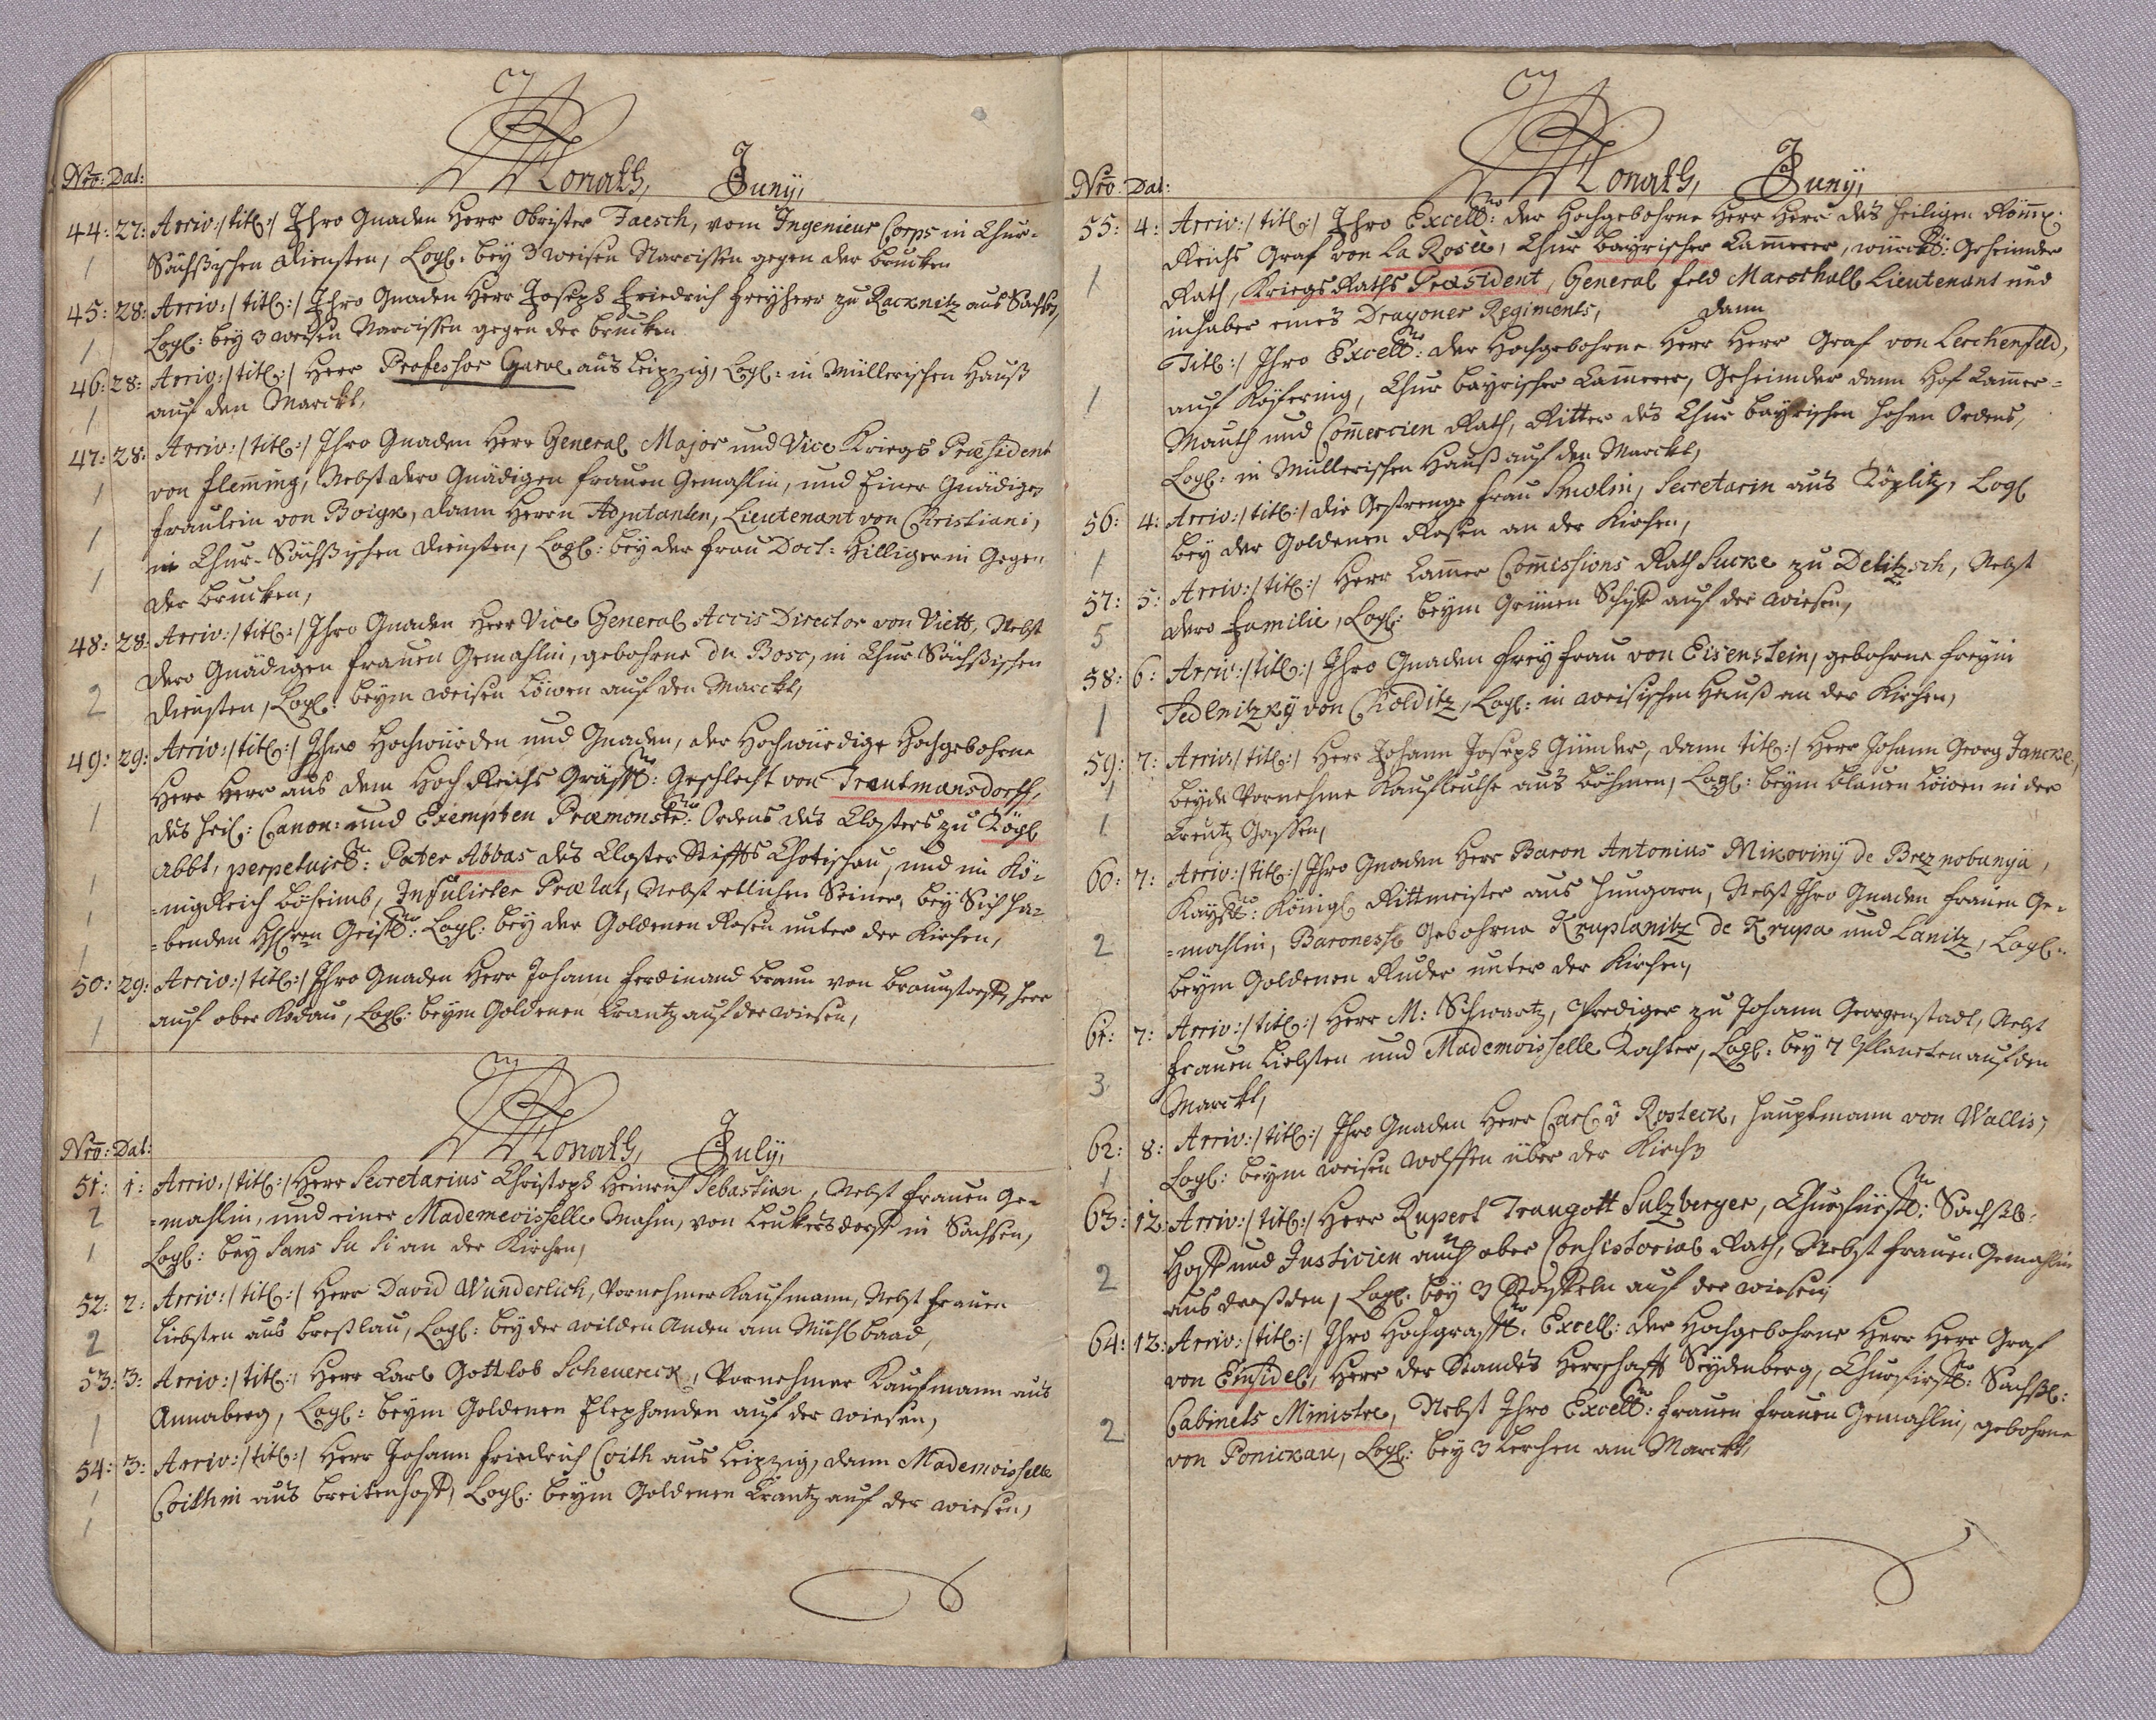 Monath, Juny,
Nro: Dat:
44: 27: Arriv:/titl:/ Ihro Gnaden Herr Obrister Faesch, vom Ingenieur Corps in Chur-
1 Sächßischen Diensten, Logl: bey 3 weisen Narcissen gegen der brucken
45: 28: Arriv:/titl:/ Ihro Gnaden Herr Joseph Friedrich Freyherr zu Racknitz aus Sachsen,
1 Logl: bey 3 weisen Narcissen gegen der brucken
46: 28: Arriv:/titl:/ Herr Professor Garve aus Leipzig, Logl: in Müllerischen Hauß
1 auf den Marckt,
47: 28: Arriv:/titl:/ Ihro Gnaden Herr General Major und Vice Kriegs Præsident
1 von Flemming, Nebst dero Gnädigen Frauen Gemahlin, und Einer Gnädigen
1 Fraulein von Boigk, dann Herrn Adjutanten, Lieutenant von Christiani,
1 in Chur-Sächßischen Diensten, Logl: bey der Frau Doct: Hilligerin Gegen
der brucken,
48: 28: Arriv:/titl:/ Ihro Gnaden Herr Vice General Accis Director von Vieth, Nebst
2 dero Gnädigen Frauen Gemahlin, gebohrne du Bosc, in Chur Sächßischen
Diensten, Logl: beym weisen Löwen auf den Marckt,
49: 29: Arriv:/titl:/ Ihro Hochwürden und Gnaden, der Hochwürdige Hochgebohrne
Herr Herr aus dem Hoch Reichs Gräffl: Geschlecht von Trautmansdorff,
1 des Heil: Canon: und Exempten Præmonstr: Ordens des Closters zu Tögl
1 Abbt, perpetuirl: Pater Abbas des Closter Stiffts Chotischau, und im Kö-
1 =nigReich Böheimb, Infulirter Prælat, Nebst etlichen Seiner, bey Sich ha-
1 =benden HHren Geistl: Logl: bey der Goldenen Rosen unter der Kirchen,
50: 29: Arriv:/titl:/ Ihro Gnaden Herr Johann Ferdinand Braun von Braunstorff, Herr
1 auf ober Kodau, Logl: beym Goldenen Krantz auf der wiesen,
Monath, July,
Nro: Dat:
51: 1: Arriv:/titl:/ Herr Secretarius Christoph Heinrich Sebastian, Nebst Frauen Ge-
2 =mahlin, und einer Mademeoisselle Mahn, von Leukersdorff in Sachsen,
1 Logl: bey Sans Su Si an der Kirchen,
52: 2: Arriv:/titl:/ Herr David Wunderlich, Vornehmer Kaufmann, Nebst Frauen
2 Liebsten aus Breßlau, Logl: bey der wilden Anden am Mühl baad,
53: 3: Arriv:/titl:/ Herr Carl Gottlob Scheuereck, Vornehmer Kaufmann aus
1 Annaberg, Logl: beym Goldenen Elephanden auf der wiesen,
54: 3: Arriv:/titl:/ Herr Johann Friedrich Coith aus Leipzig, dann Mademoisselle
1 Coithin aus Breitenhoff, Logl: beym Goldenen Krantz auf der wiesen,
1
Monath, Juny,
Nro Dat:
55: 4: Arriv:/titl:/ Ihro Excell: der Hochgebohrne Herr Herr des Heiligen Römis:
Reichs Graf von La Roseè, Chur bayrischer Cammerer, würckl: Geheimder
1 Rath, Kriegs Raths Præsident, General Feld Marschall Lieutenant und
inhaber eines Dragoner Regiments, dann
Titl:/ Ihro Excell: der Hochgebohrne Herr Herr Graf von Lerchenfeld,
1 auf Köfering, Chur bayrischer Cammerer, Geheimder dann Hof Cammer=
Mauth und Commercien Rath, Ritter des Chur bayrischen hohen Ordens,
Logl: in Müllerischen Hauß auf den Marckt,
56: 4: Arriv:/titl:/ die Gestrenge Frau Smolin, Secretarin aus Töplitz, Logl
1 bey der Goldenen Rosen an der Kirchen,
57: 5: Arriv:/titl:/ Herr Cammer Commissions Rath Lucke zu Delitzsch, Nebst
5 dero Familie, Logl: beym Grünen Schiff auf der wiesen,
58: 6: Arriv:/titl:/ Ihro Gnaden Freyfrau von Eisenstein, gebohrne Freyin
1 Jedlnitzky von Cholditz, Logl: in weisischen Hauß an der Kirchen,
59: 7: Arriv:/titl:/ Herr Johann Joseph Günder, dann titl:/ Herr Johann Georg Jancke,
1 beyde Vornehme Kaufleuthe aus Böhmen, Logl: beym blauen Löwen in der
1 Creutz Gassen,
60: 7: Arriv:/titl:/ Ihro Gnaden Herr Baron Antonius Mikoviny de Breznobanya,
Kaysl: Königl Rittmeister aus Hungarn, Nebst Ihro Gnaden Frauen Ge-
2 =mahlin, Baronesse Gebohrne Kruplanitz de Krupa und Lanitz, Logl:
beym Goldenen Ruder unter der Kirchen,
61: 7: Arriv:/titl:/ Herr M: Schwartz, Prediger zu Johann Georgenstadt, Nebst
3 Frauen Liebsten und Mademoisselle Tochter, Logl: bey 7 Planeten auf den
Marckt,
62: 8: Arriv:/titl:/ Ihro Gnaden Herr Carl v Rosteck, Hauptmann von Wallis,
1 Logl: beym weisen Wolffen über der Kirch
63: 12: Arriv:/titl:/ Herr Rupert Traugott Sulzberger, Churfürstl: Sächsl:
2 Hoff und Justicien auch ober Consistorial Rath, Nebst Frauen Gemahlin
aus Dreßden, Logl: bey 3 Staffeln auf der wiesen,
64: 12: Arriv:/titl:/ Ihro Hochgräffl: Excell: der Hochgebohrne Herr Herr Graf
von Einsidel, Herr der Standes Herrschafft Seydenberg, Churfürstl: Sächßl:
2 Cabinets Ministre, Nebst Ihro Excell: Frauen Frauen Gemahlin, gebohrne
von Ponickau, Logl: bey 3 Lerchen am Marckt,